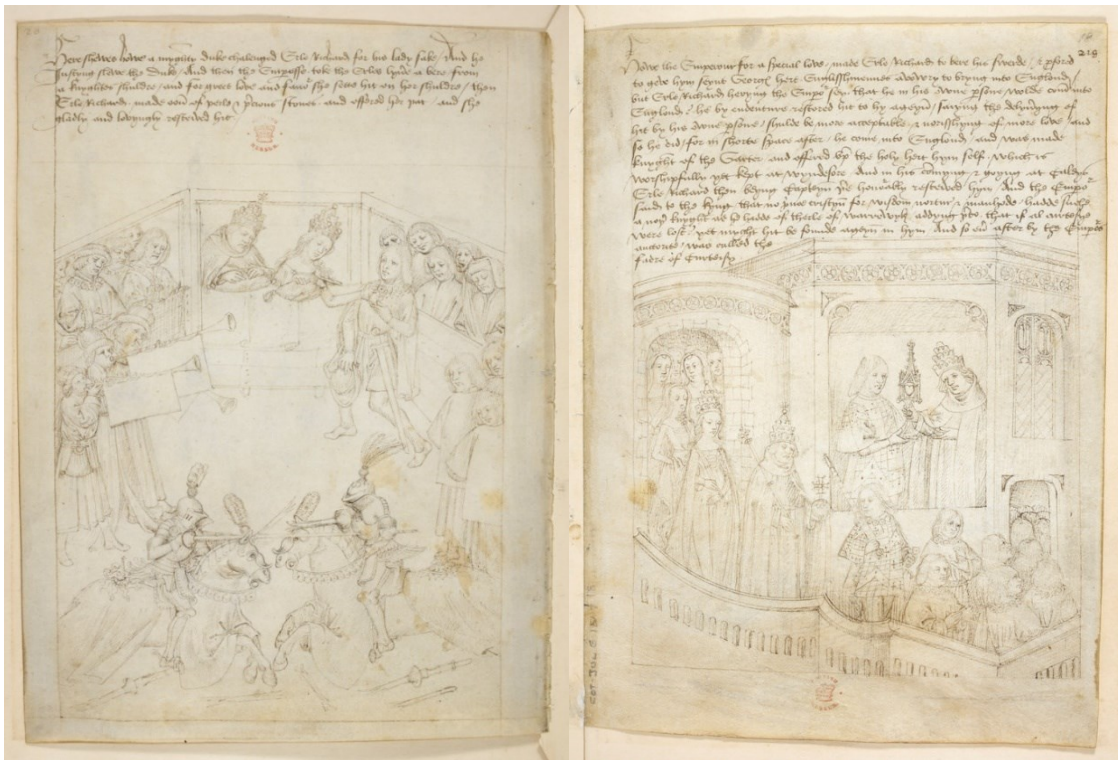 Here shewes howe a myghty duke chalenged Erle Richard for his lady sake / And in
Justyng slewe the Duke / And then the Empresse toke the Erles bere from
a knyghtes shuldre / and for grete love and she sette hit on hir shuldre / then
Erle Richard made oon of perle & stones and offred hir that / and she
gladly and lovyngly resceived hit
Howe the Emperour for a special love / made Erle Richard to bere his swerde / &
to geve hym seynt Georges hert Englisshmennes to bryng into Englond /
but Erle Richard heryng the sey that he in his owne psone wolde come into
Englond / he by endenture restored hit to hy ageyn / saiyng the delyveryng of
hit by his owne psone / shulde be more acceptable & norisshyng of more love / and
so he did / for in shorte space after / he come into Englond and was made
knyght of the Garter and offred up the holy hert hym self / which is
worshipfully yet kept at Wyndesore And in his comyng & goyng at Caleys
Erle Richard then beyng Capteyn resceived hym / And the
said to the kyng that no prince cristyn for wisdom nortur & manhode / hadde such
a nother knyght as he hadde of therle of Warrewyk / addyng that if al curtesye
were lost / yet myght hit be founde ageyn in hym And so after by the
auctorite / was called the
fadre of Curteisy
218